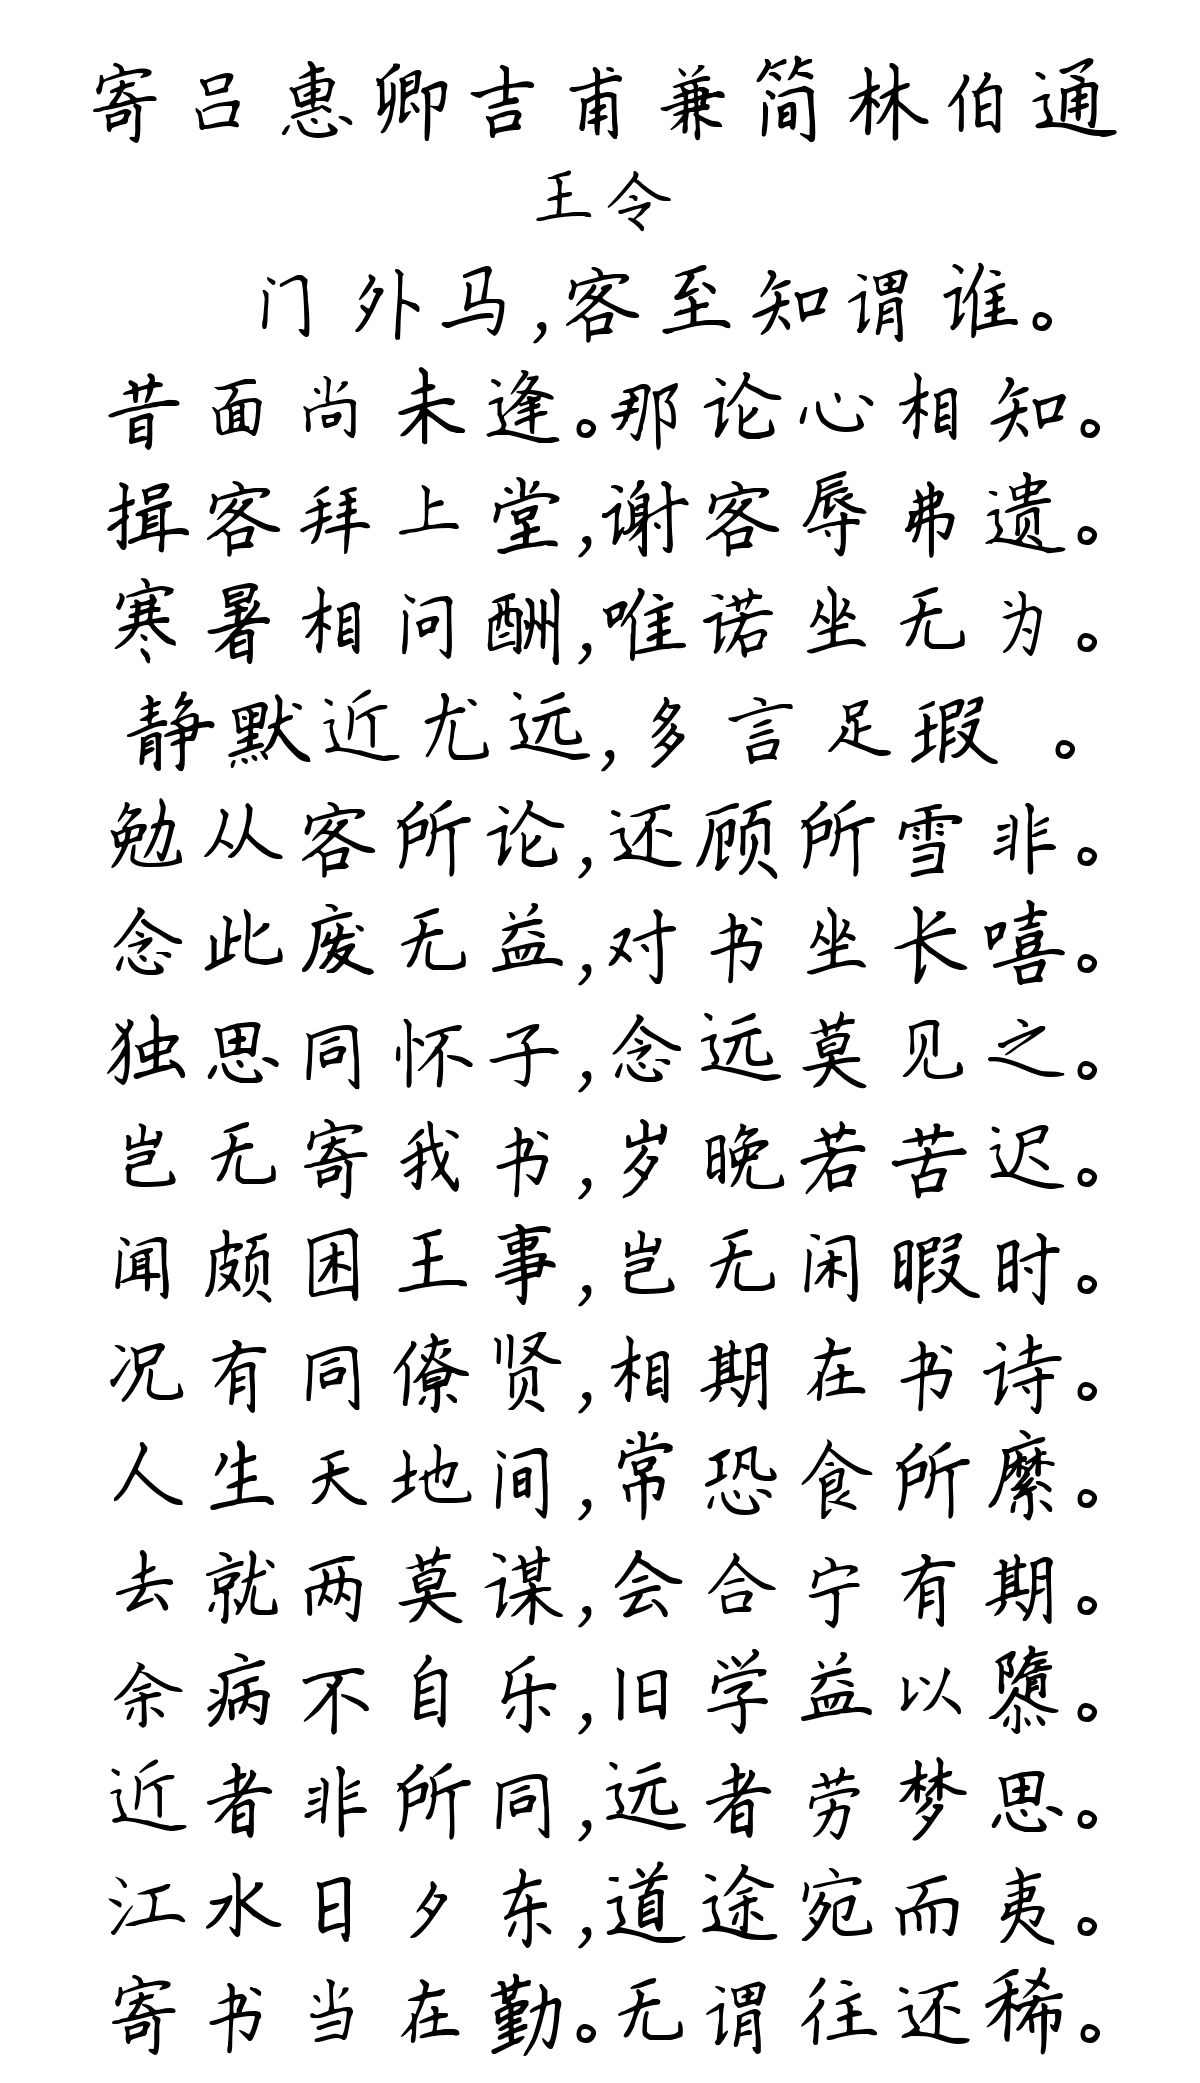 寄吕惠卿吉甫兼简林伯通
王令
门外马,客至知谓谁。
昔面尚未逢。那论心相知。
揖客拜上堂,谢客辱弗遗。
寒暑相问酬,唯诺坐无为。
静默近尤远,多言足瑕 。
勉从客所论,还顾所雪非。
念此废无益,对书坐长嘻。
独思同怀子,念远莫见之。
岂无寄我书,岁晚若苦迟。
闻颇困王事,岂无闲暇时。
况有同僚贤,相期在书诗。
人生天地间,常恐食所縻。
去就两莫谋,会合宁有期。
余病不自乐,旧学益以隳。
近者非所同,远者劳梦思。
江水日夕东,道途宛而夷。
寄书当在勤。无谓往还稀。